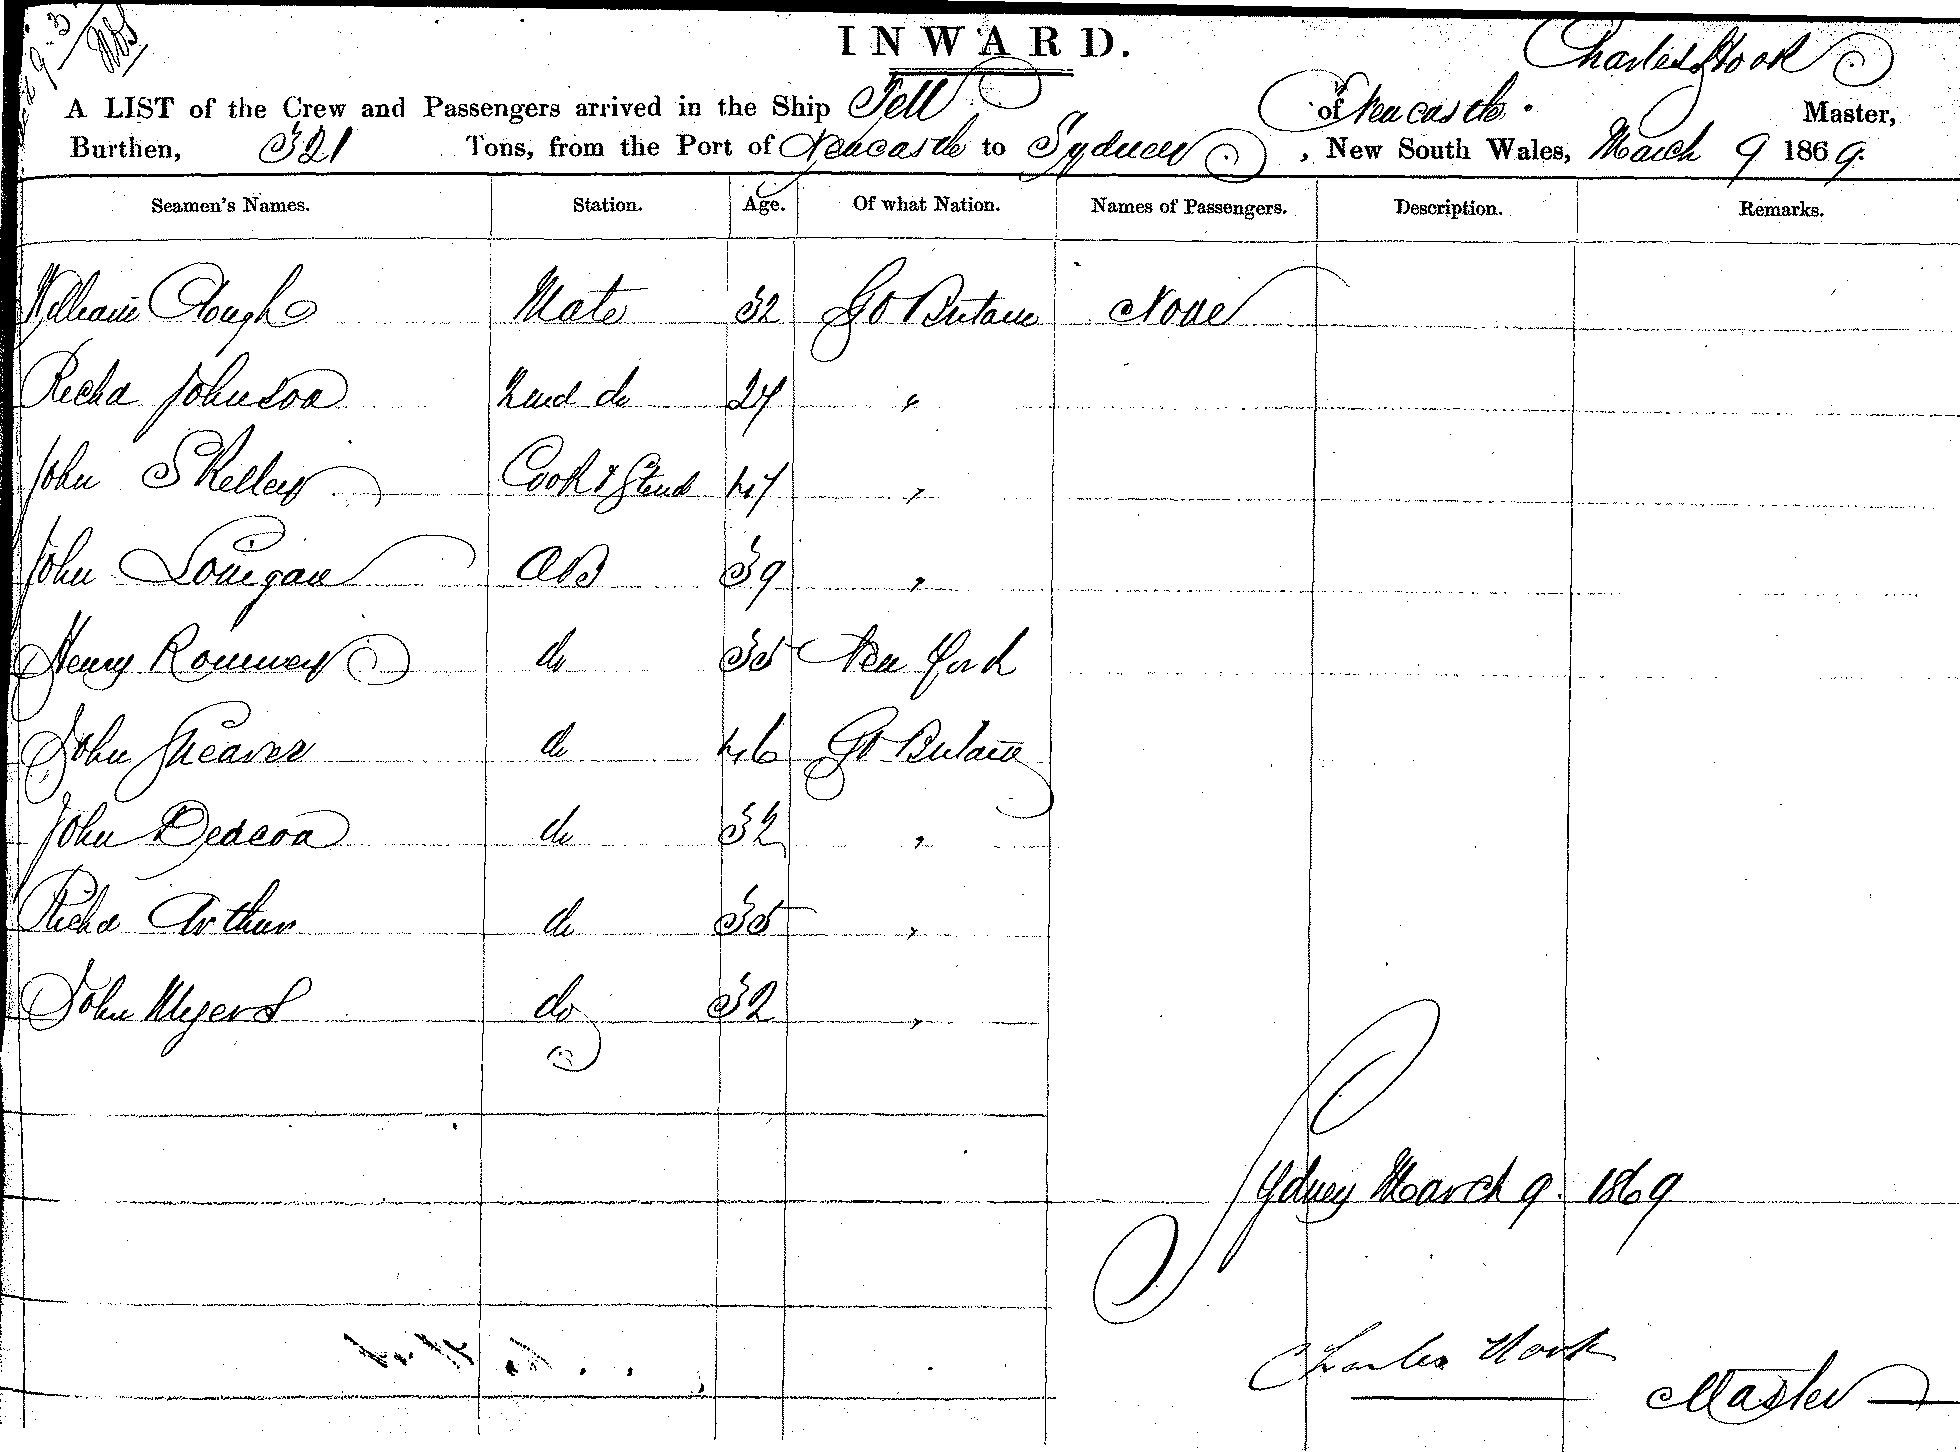 INWARD.
Charles Hook
A LIST of the Crew and Passengers arrived in the Ship Tell of Newcastle. Master,
Burthen, 321 Tons, from the Port of Newcastle to Sydney, New South Wales, March 9 1869.
Seamen's Names. Station. Age. Of what Nation. Names of Passengers. Description. Remarks.
William Clough Mate 32 Gt Britain None
Richd Johnson 2nd do 27 "
John Skelley Cook & Stewd 47 "
John Lonigan AB 39 "
Henry Romney do 35 New York
John Shearer do 46 Gt Britain
John Deacon do 32 "
Richd Arthur do 35 "
John Myers do 32 "
Sydney March 9. 1869
Charles Hook
Master